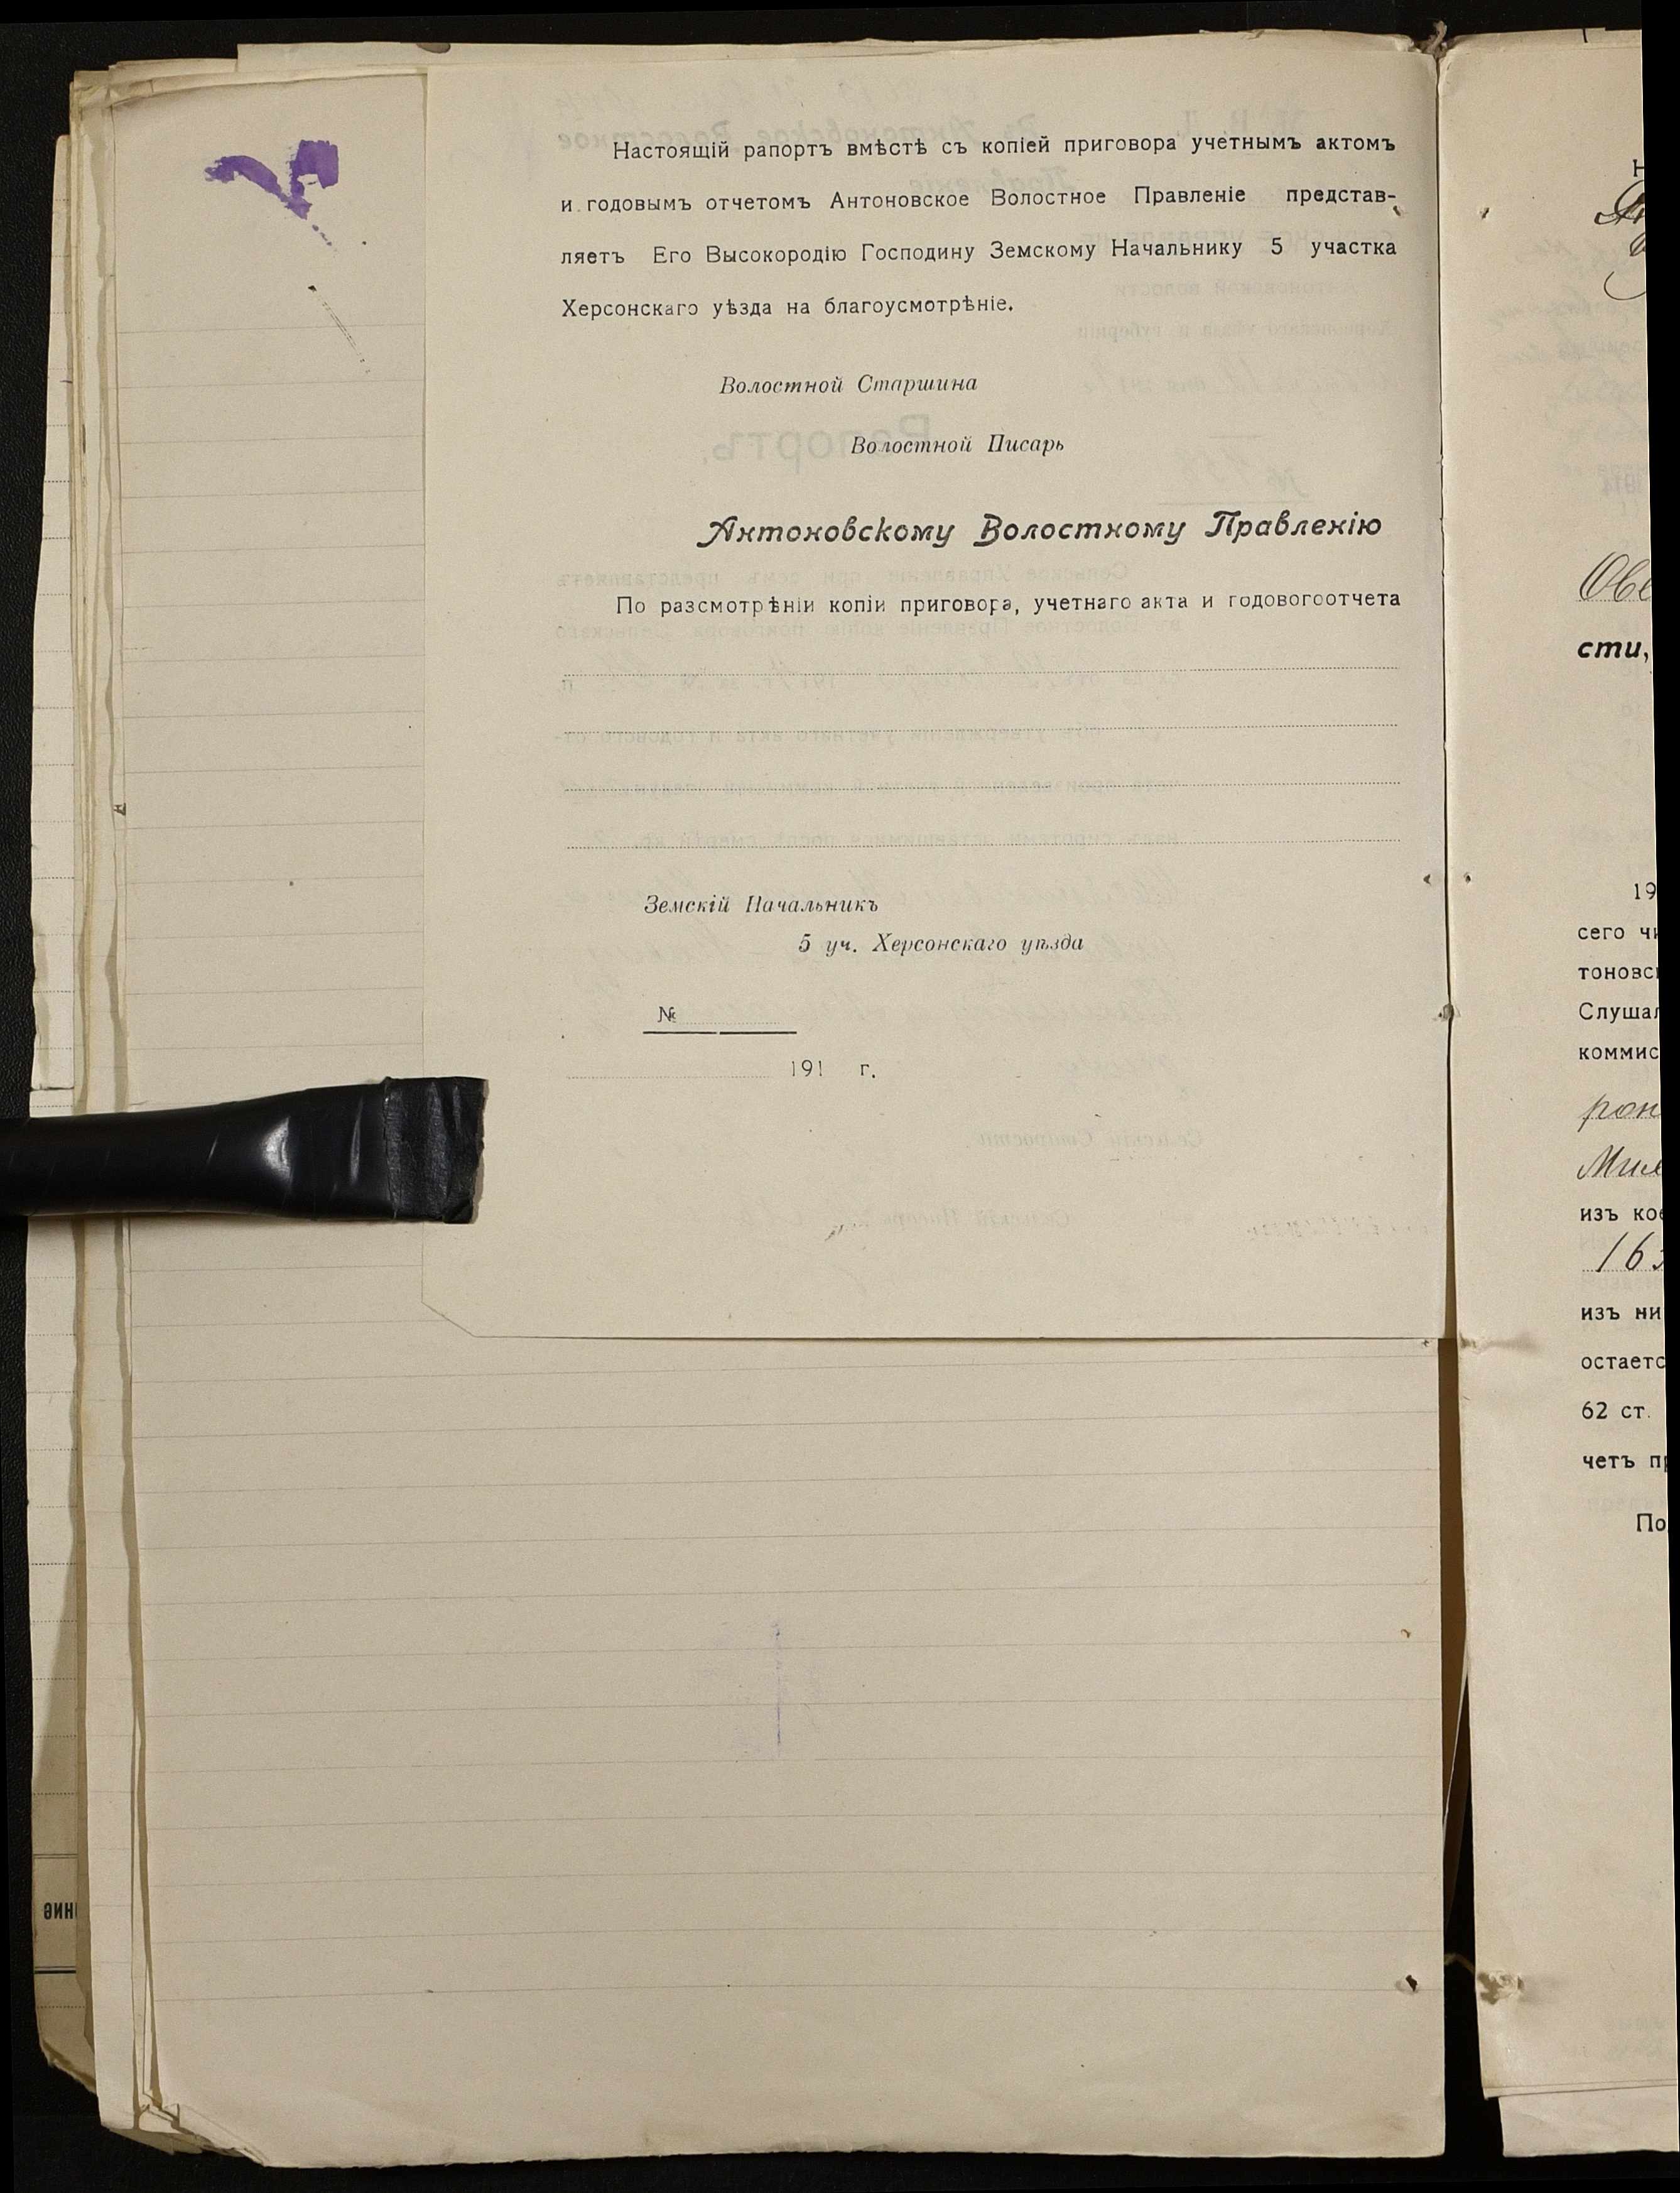 Настоящій рапортъ вмѣстѣ съ копіей приговора учетнымъ актомъ
и годовымъ отчетомъ Антоновское Волостное Правленіе представ-
ляетъ Его Высокородію Господину Земскому Начальнику 5 участка
Херсонскаго уѣзда на благоусмотрѣніе.
Волостной Старшина
Волостной Писарь
Антоновскому Волостному Правленію
По разсмотрѣніи копіи приговора, учетнаго акта и годовогоотчета
Земскій Начальникъ
5 уч. Херсонскаго уѣзда
№
191 г.
сти,
19
сего
Слуша
коммис
изъ
изъ ни
остаетс
62 ст.
четъ
По